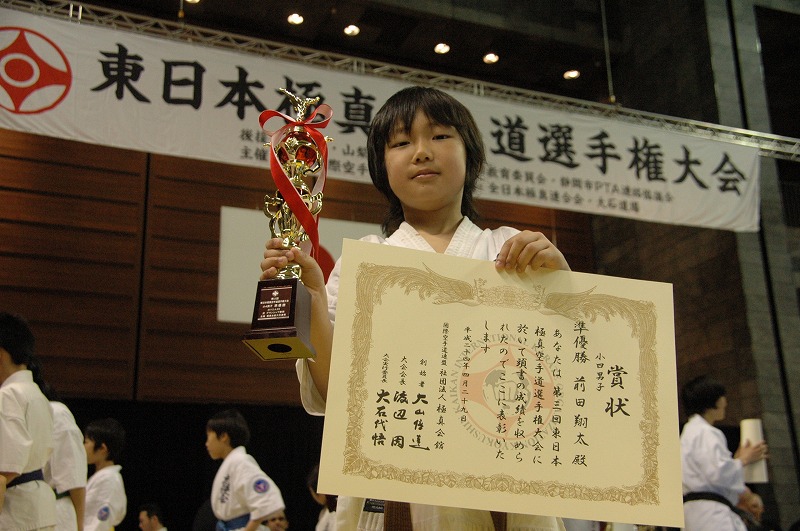 東日本極真 道選手権大会
後援
山梨
教育委員会・静岡市PTA連絡協議会
主催
際空手
全日本極真連合会・大石道場
賞状
小四男子
準優勝 前田翔太殿
あなたは第三回東日本
極真空手道選手権大会に
於いて頭書の成績を収めら
れたのでここに表彰いた
します
平成二十四年四月二十九日
國際空手道連盟 社団法人極真会館
創始者 大山倍達
大会会長 渡辺 周
大会実行委員長
大石代悟